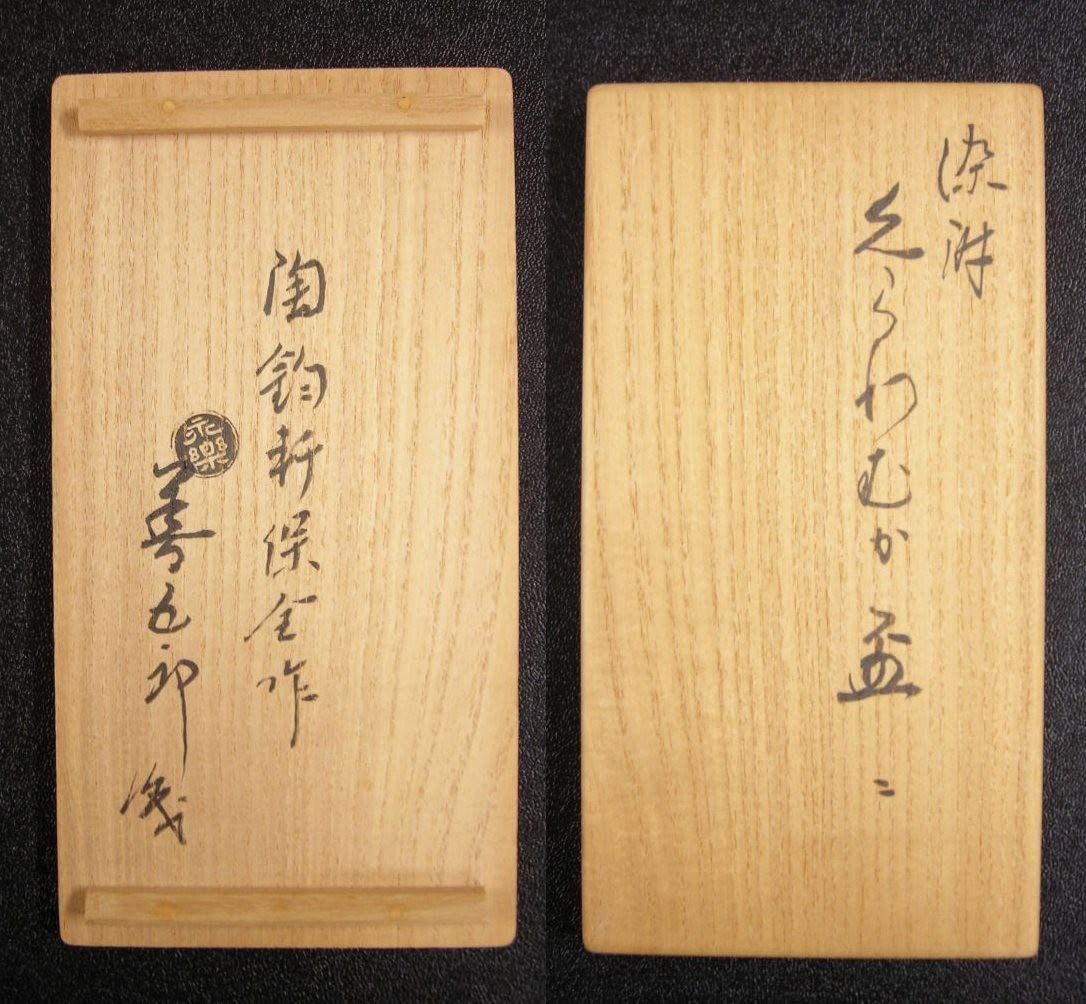 染附
くらわむか 盃 二
陶鈞軒保全作
永樂
善五郎 識